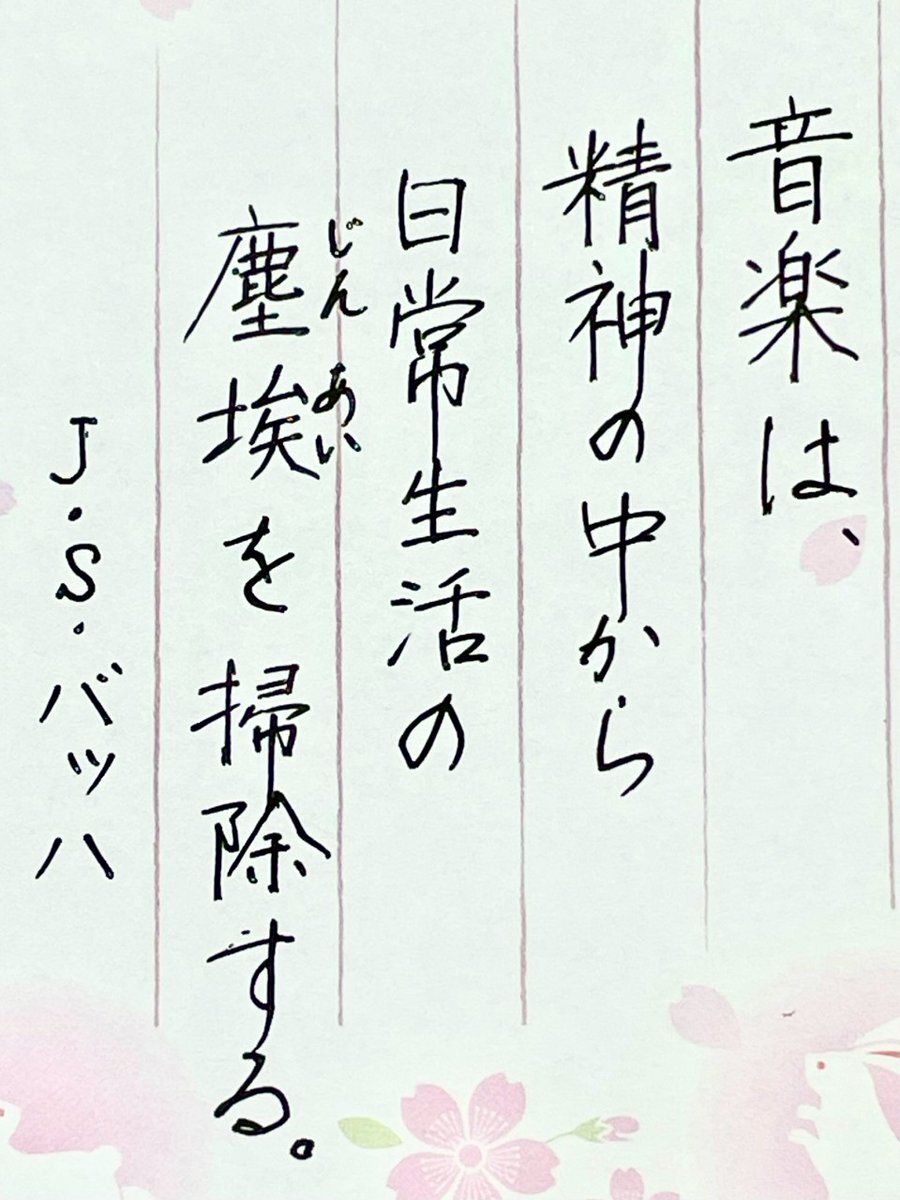 音楽は、
精神の中から
日常生活の
じん あい
塵埃を掃除する。
J.S.バッハ